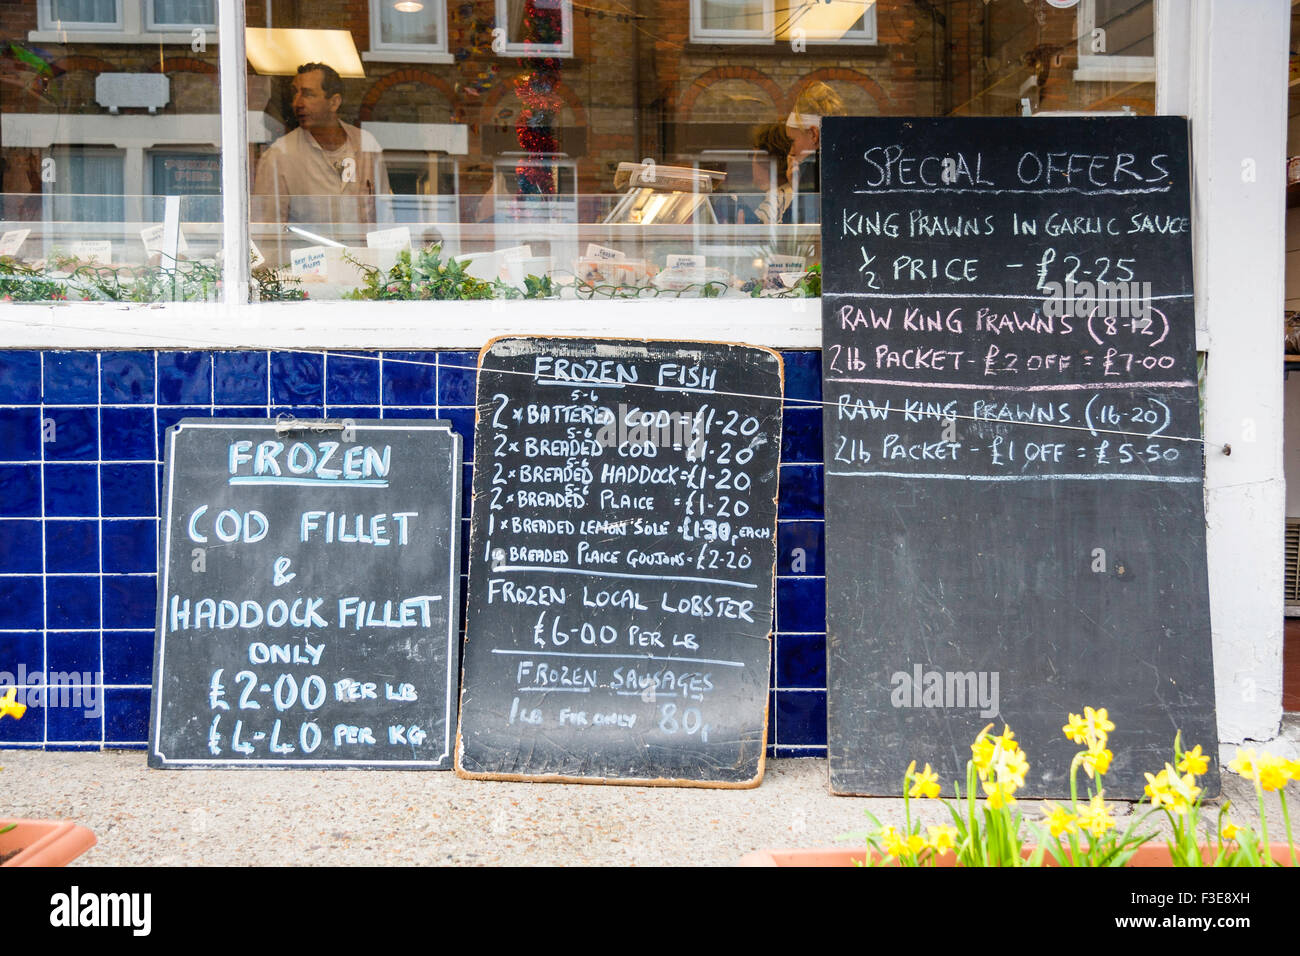 FROZEN
COD FILLET
&
HADDOCK FILLET
ONLY
£2-00 PER LB
£4-40 PER KG
FROZEN FISH
5-6
2 x BATTERED COD = £1-20
5-6
2 x BREADED COD = £1-20
5-6
2 x BREADED HADDOCK = £1-20
5-6
2 x BREADED PLAICE = £1-20
1 x BREADED LEMON SOLE = EACH
BREADED PLAICE GOUJONS = £2-20
FROZEN LOCAL LOBSTER
£6-00 PER LB
FROZEN SAUSAGES
1 LB FOR ONLY 80p
SPECIAL OFFERS
KING PRAWNS IN GARLIC SAUCE
½ PRICE - £2-25
RAW KING PRAWNS (8-12)
2lb PACKET - £2 OFF = £7-00
RAW KING PRAWNS (16-20)
2lb PACKET - £1 OFF = £5-50
alamy
alamy
Image ID: F3E8XH
www.alamy.com